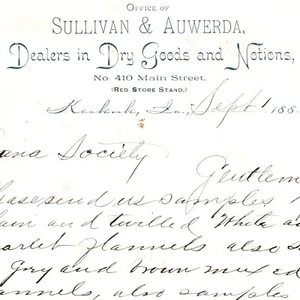 OFFICE OF
SULLIVAN & AUWERDA,
Dealers in Dry Goods and Notions,
No. 410 Main Street,
(RED STORE STAND.)
Keokuk, Ia., Sept 1 188
ana Society
Gentlem
lease send us samples
lain and twilled White a
carlet flannels also s
Grey and brown mixed
annels, also samples